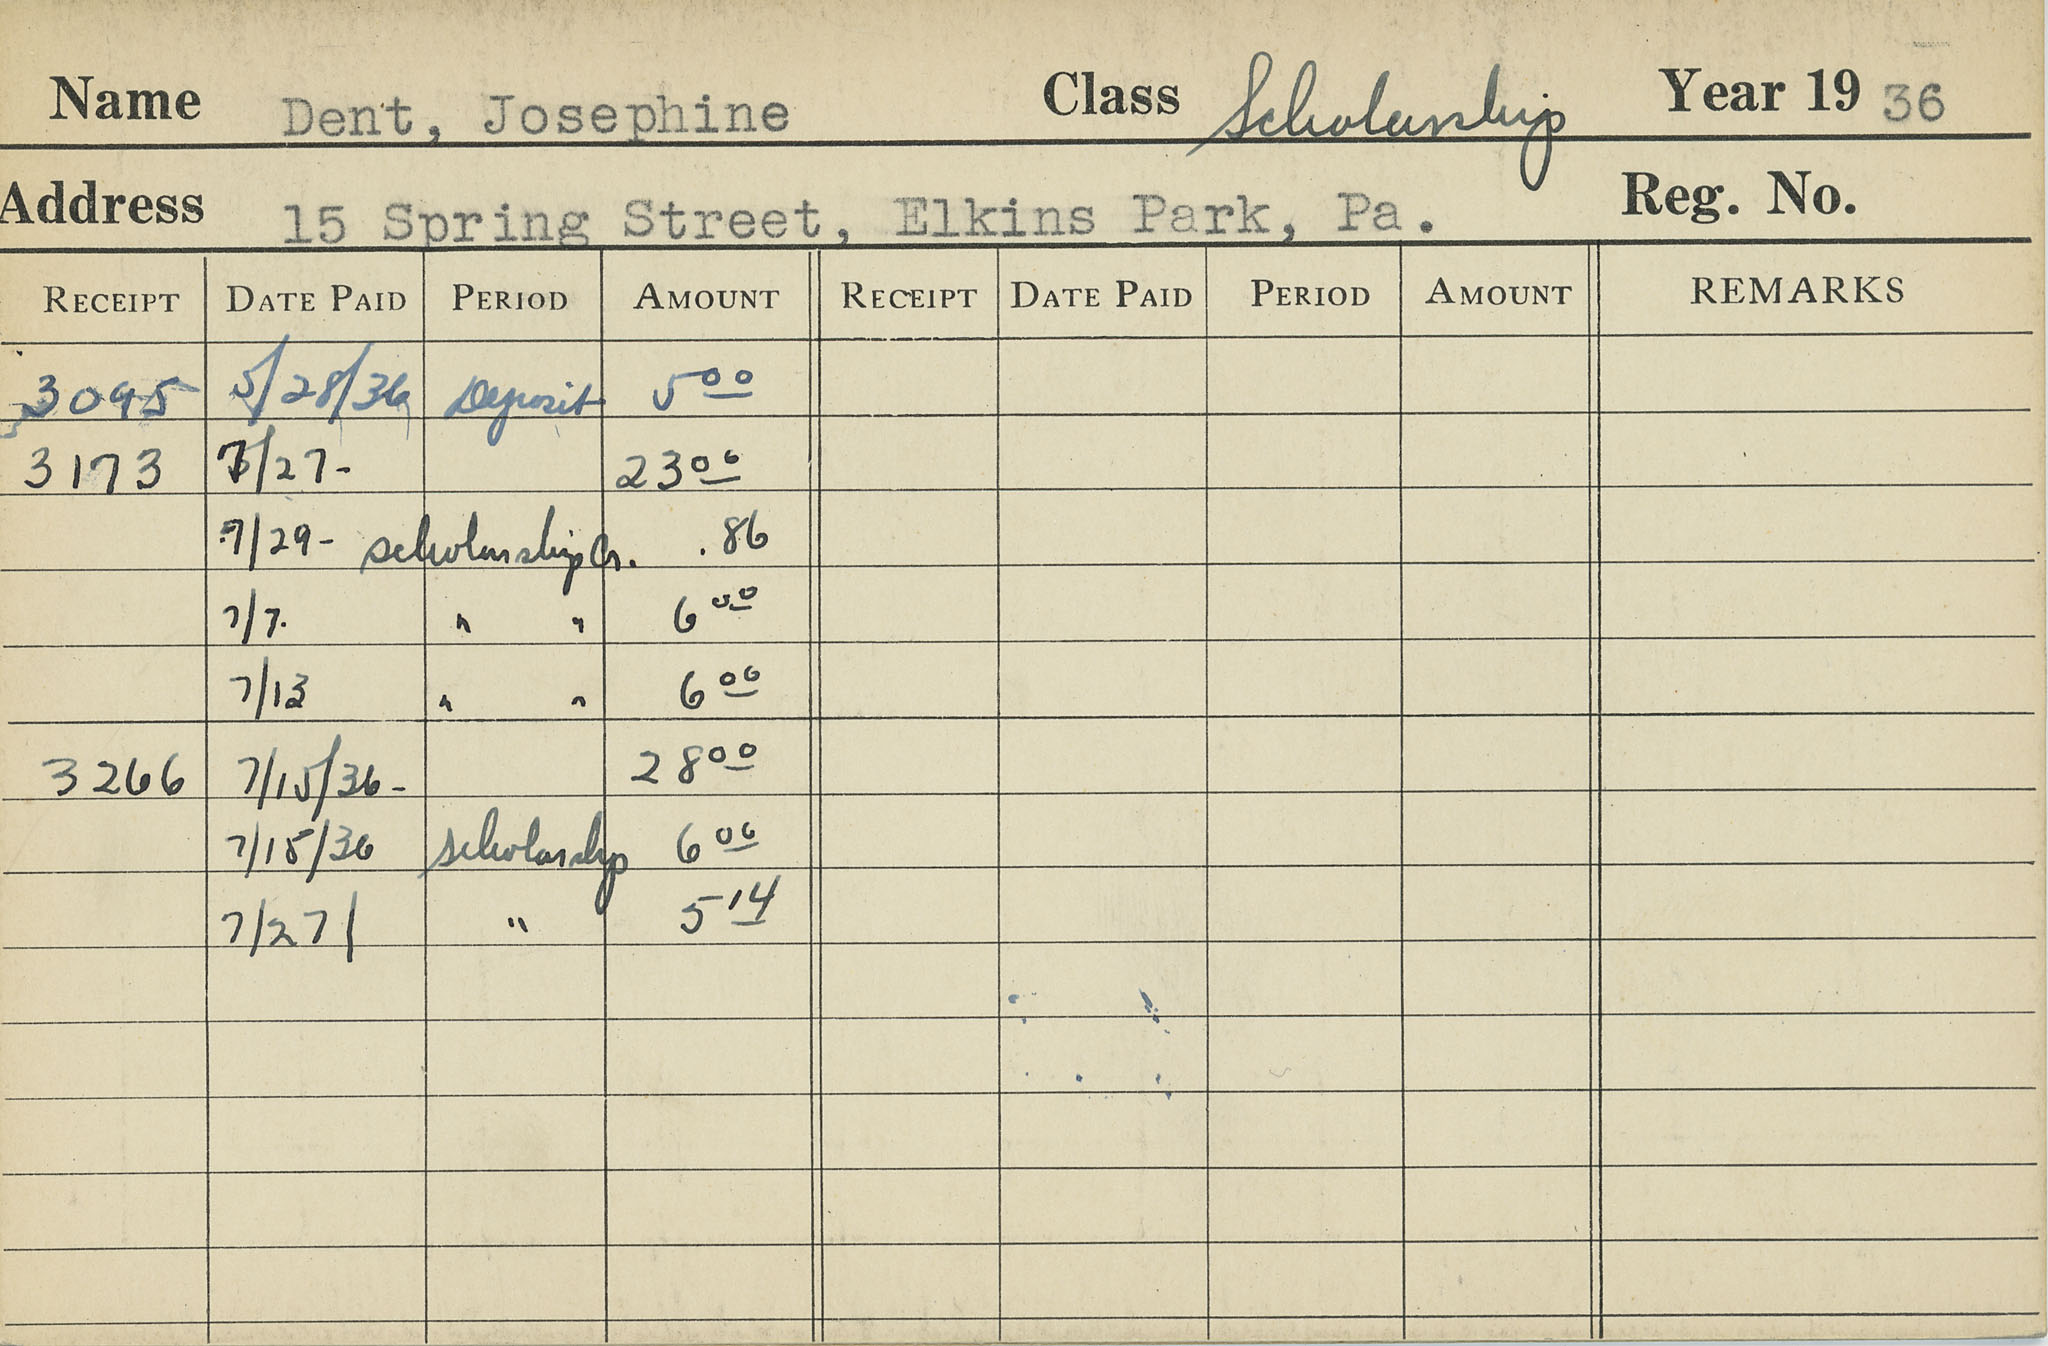 Name Dent, Josephine Class Scholarship Year 19 36
Address 15 Spring Street, Elkins Park, Pa. Reg. No.
RECEIPT DATE PAID PERIOD AMOUNT RECEIPT DATE PAID PERIOD AMOUNT REMARKS
3095 5/28/36 Deposit 5 00
3173 /27- 23 00
/29- scholarship Cr. .86
7/7. " " 6 00
7/13 " " 6 00
3266 7/15/36- 28 00
7/15/36 scholarship 6 00
7/27/ " 5 14